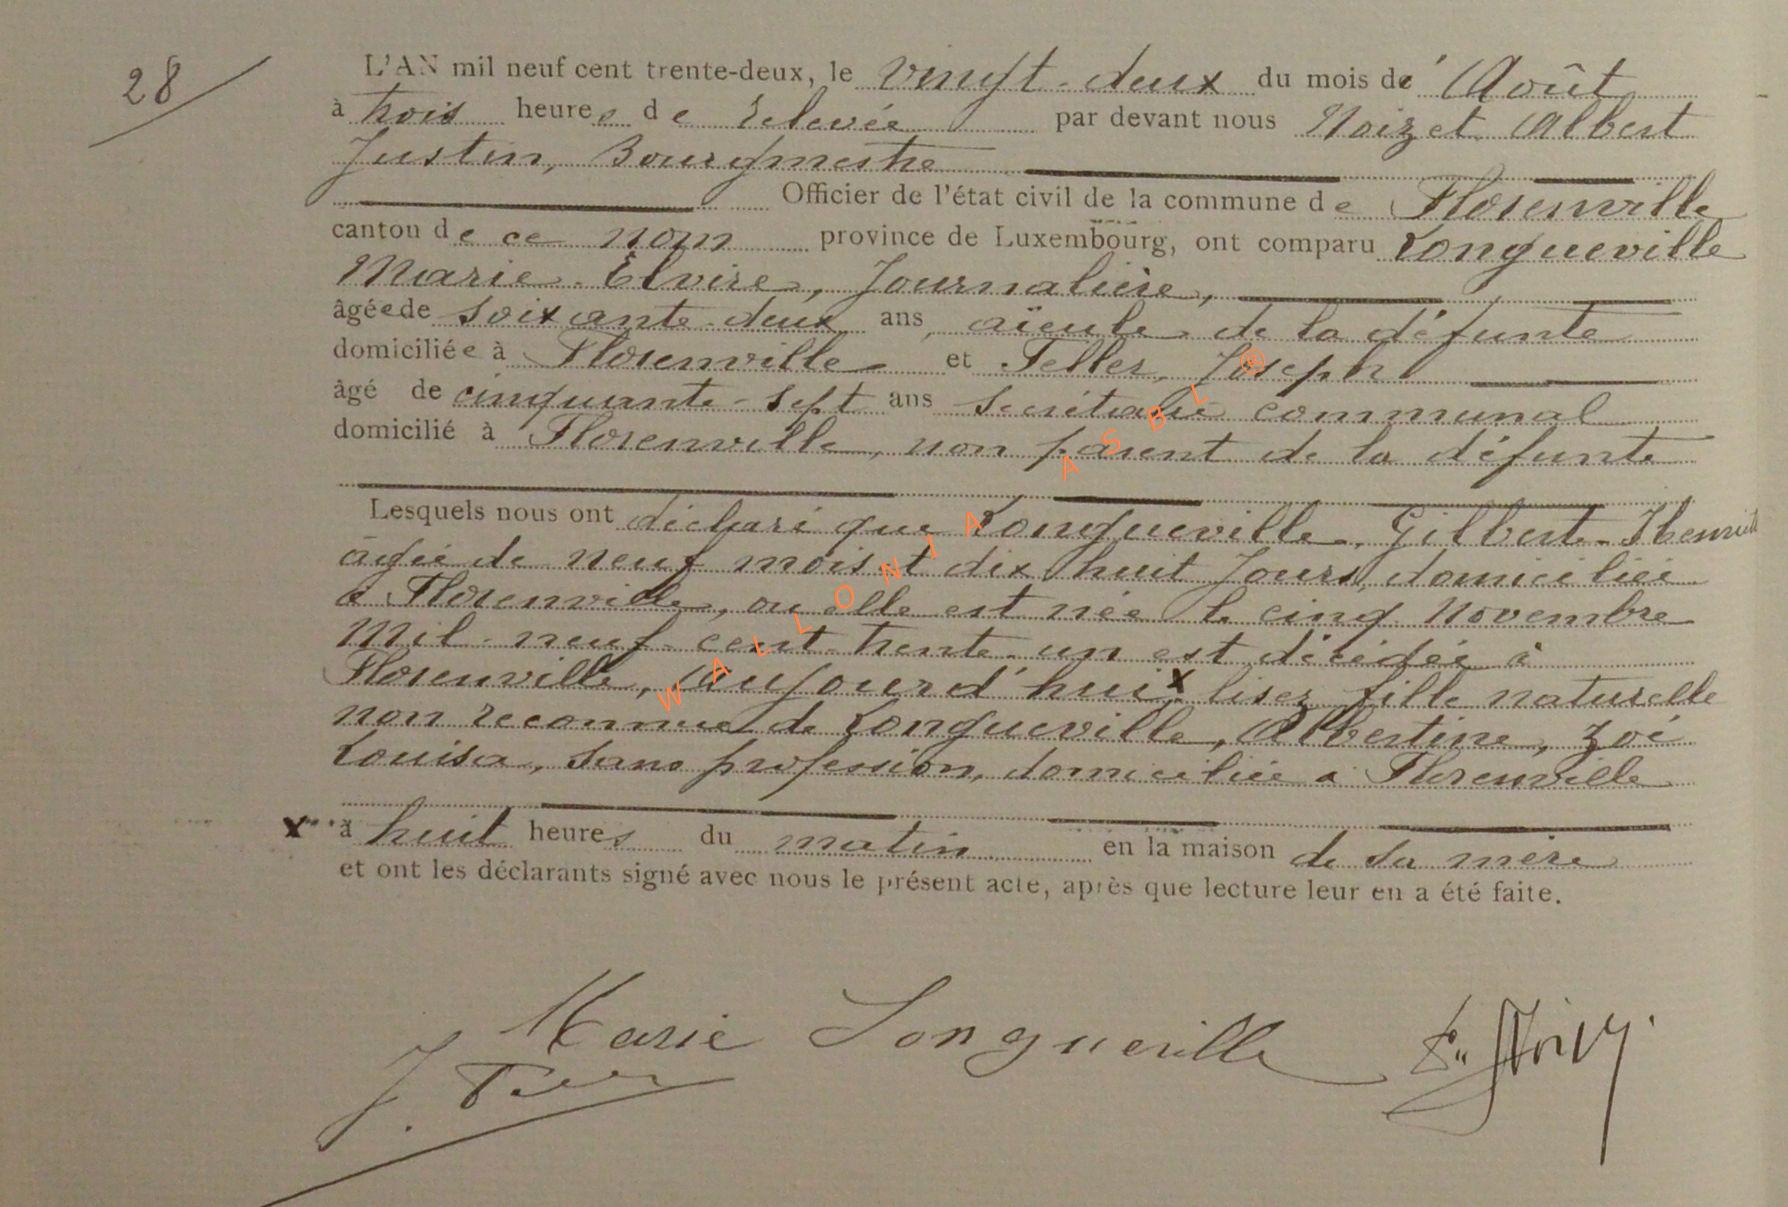 28
L'AN mil neuf cent trente-deux, le vingt-deux du mois de Août
à trois heures de relevée par devant nous Noizet Albert
Justin, Bourgmestre
Officier de l'état civil de la commune de Florenville
canton de ce nom province de Luxembourg, ont comparu Longueville
Marie-Elvire, Journalière,
âgée de soixante-deux ans, aïeule de la défunte
domiciliée à Florenville et Feller, Joseph
âgé de cinquante-sept ans secrétaire communal
domicilié à Florenville, non parent de la défunte
Lesquels nous ont déclaré que Longueville, Gilberte-
âgée de neuf mois et dix huit Jours, domiciliée
à Florenville, où elle est née le cinq Novembre
Mil-neuf-cent-trente-un est décédée à
Florenville, aujourd'hui x lisez fille naturelle
non reconnue de Longueville, Albertine, Zoé
Louisa, sans profession, domiciliée à Florenville
x à huit heures du matin en la maison de sa mère
et ont les déclarants signé avec nous le présent acte, après que lecture leur en a été faite.
Marie Longueville
J.
WALLONIA ASBL ®